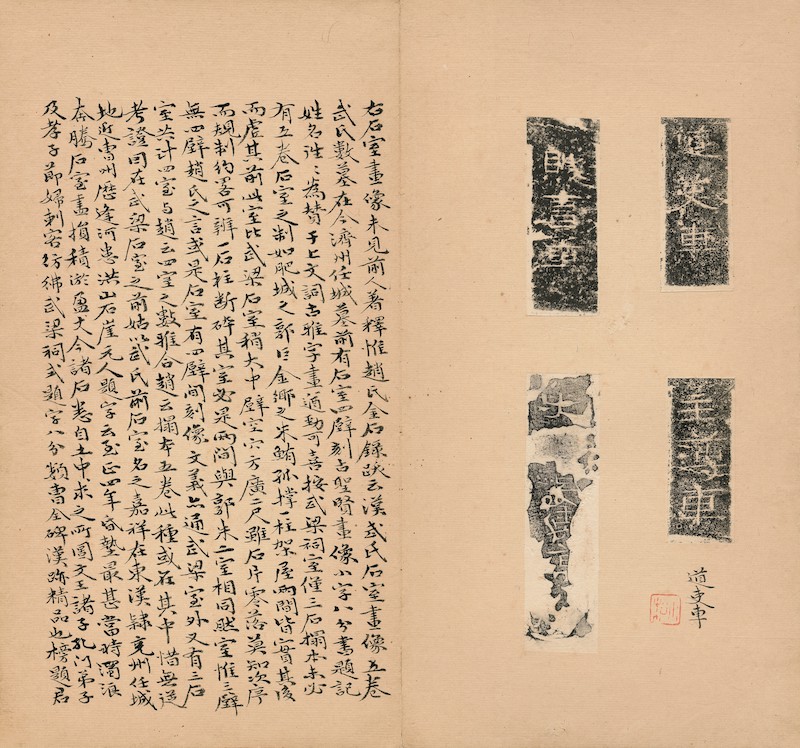 道吏車
主簿車
賊曹車
道吏車
右石室畫像未見前人著釋惟趙氏金石錄跋云漢武氏石室畫像五卷
武氏數墓在今濟州任城墓前有石室四壁刻古聖賢畫像小字八分書題記
姓名往〻為贊于上文詞古雅字畫遒勁可喜按武梁祠室僅三石搨本未必
有五卷石室之制如肥城之郭巨金鄉之朱鮪孤撐一柱架屋兩間皆實其後
而虛其前此室比武梁石室稍大中壁室穴方廣二尺雖石片零落莫知次序
而規制約畧可辨一石柱斷碎其室必是兩間與郭朱二室相同然室惟三壁
無四壁趙氏之言或是石室有四壁間刻像文義亦通武梁室外又有三石
室共計四室与趙云四室之數雖合趙云搨本五卷此種或在其中惜無從
考證因在武梁石室之前姑以武氏前石室名之嘉祥在東漢隸兖州任城
地近曹州歷逢河患洪山石崖元人題字云至正四年昏墊最甚當時濁浪
奔騰石室盡損積淤盈丈今諸石悉自土中求之所圖文王諸子孔门弟子
及孝子節婦刺客彷彿武梁祠式題字八分類曹全碑漢跡精品也榜題君